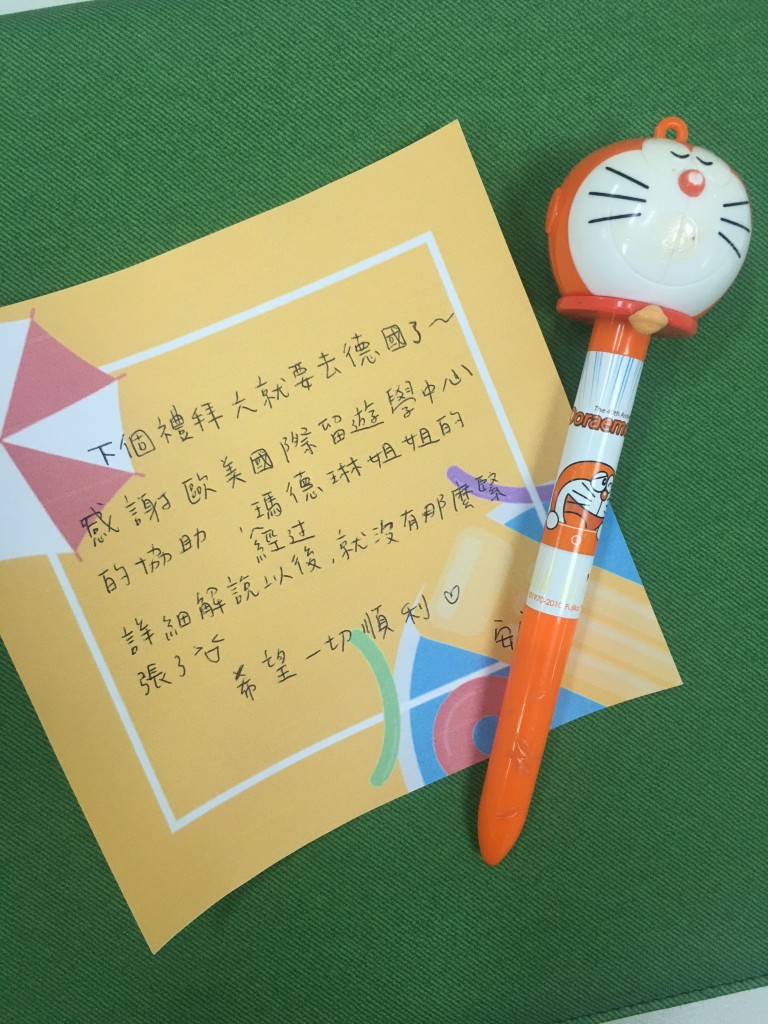 下個禮拜六就要去德國了～
感謝歐美國際留遊學中心
的協助，瑪德琳姐姐的
經过
詳細解說以後，就沒有那麼緊
張了
希望一切順利♡
The 40th
Doraemo
©1970-2010 Fujiko